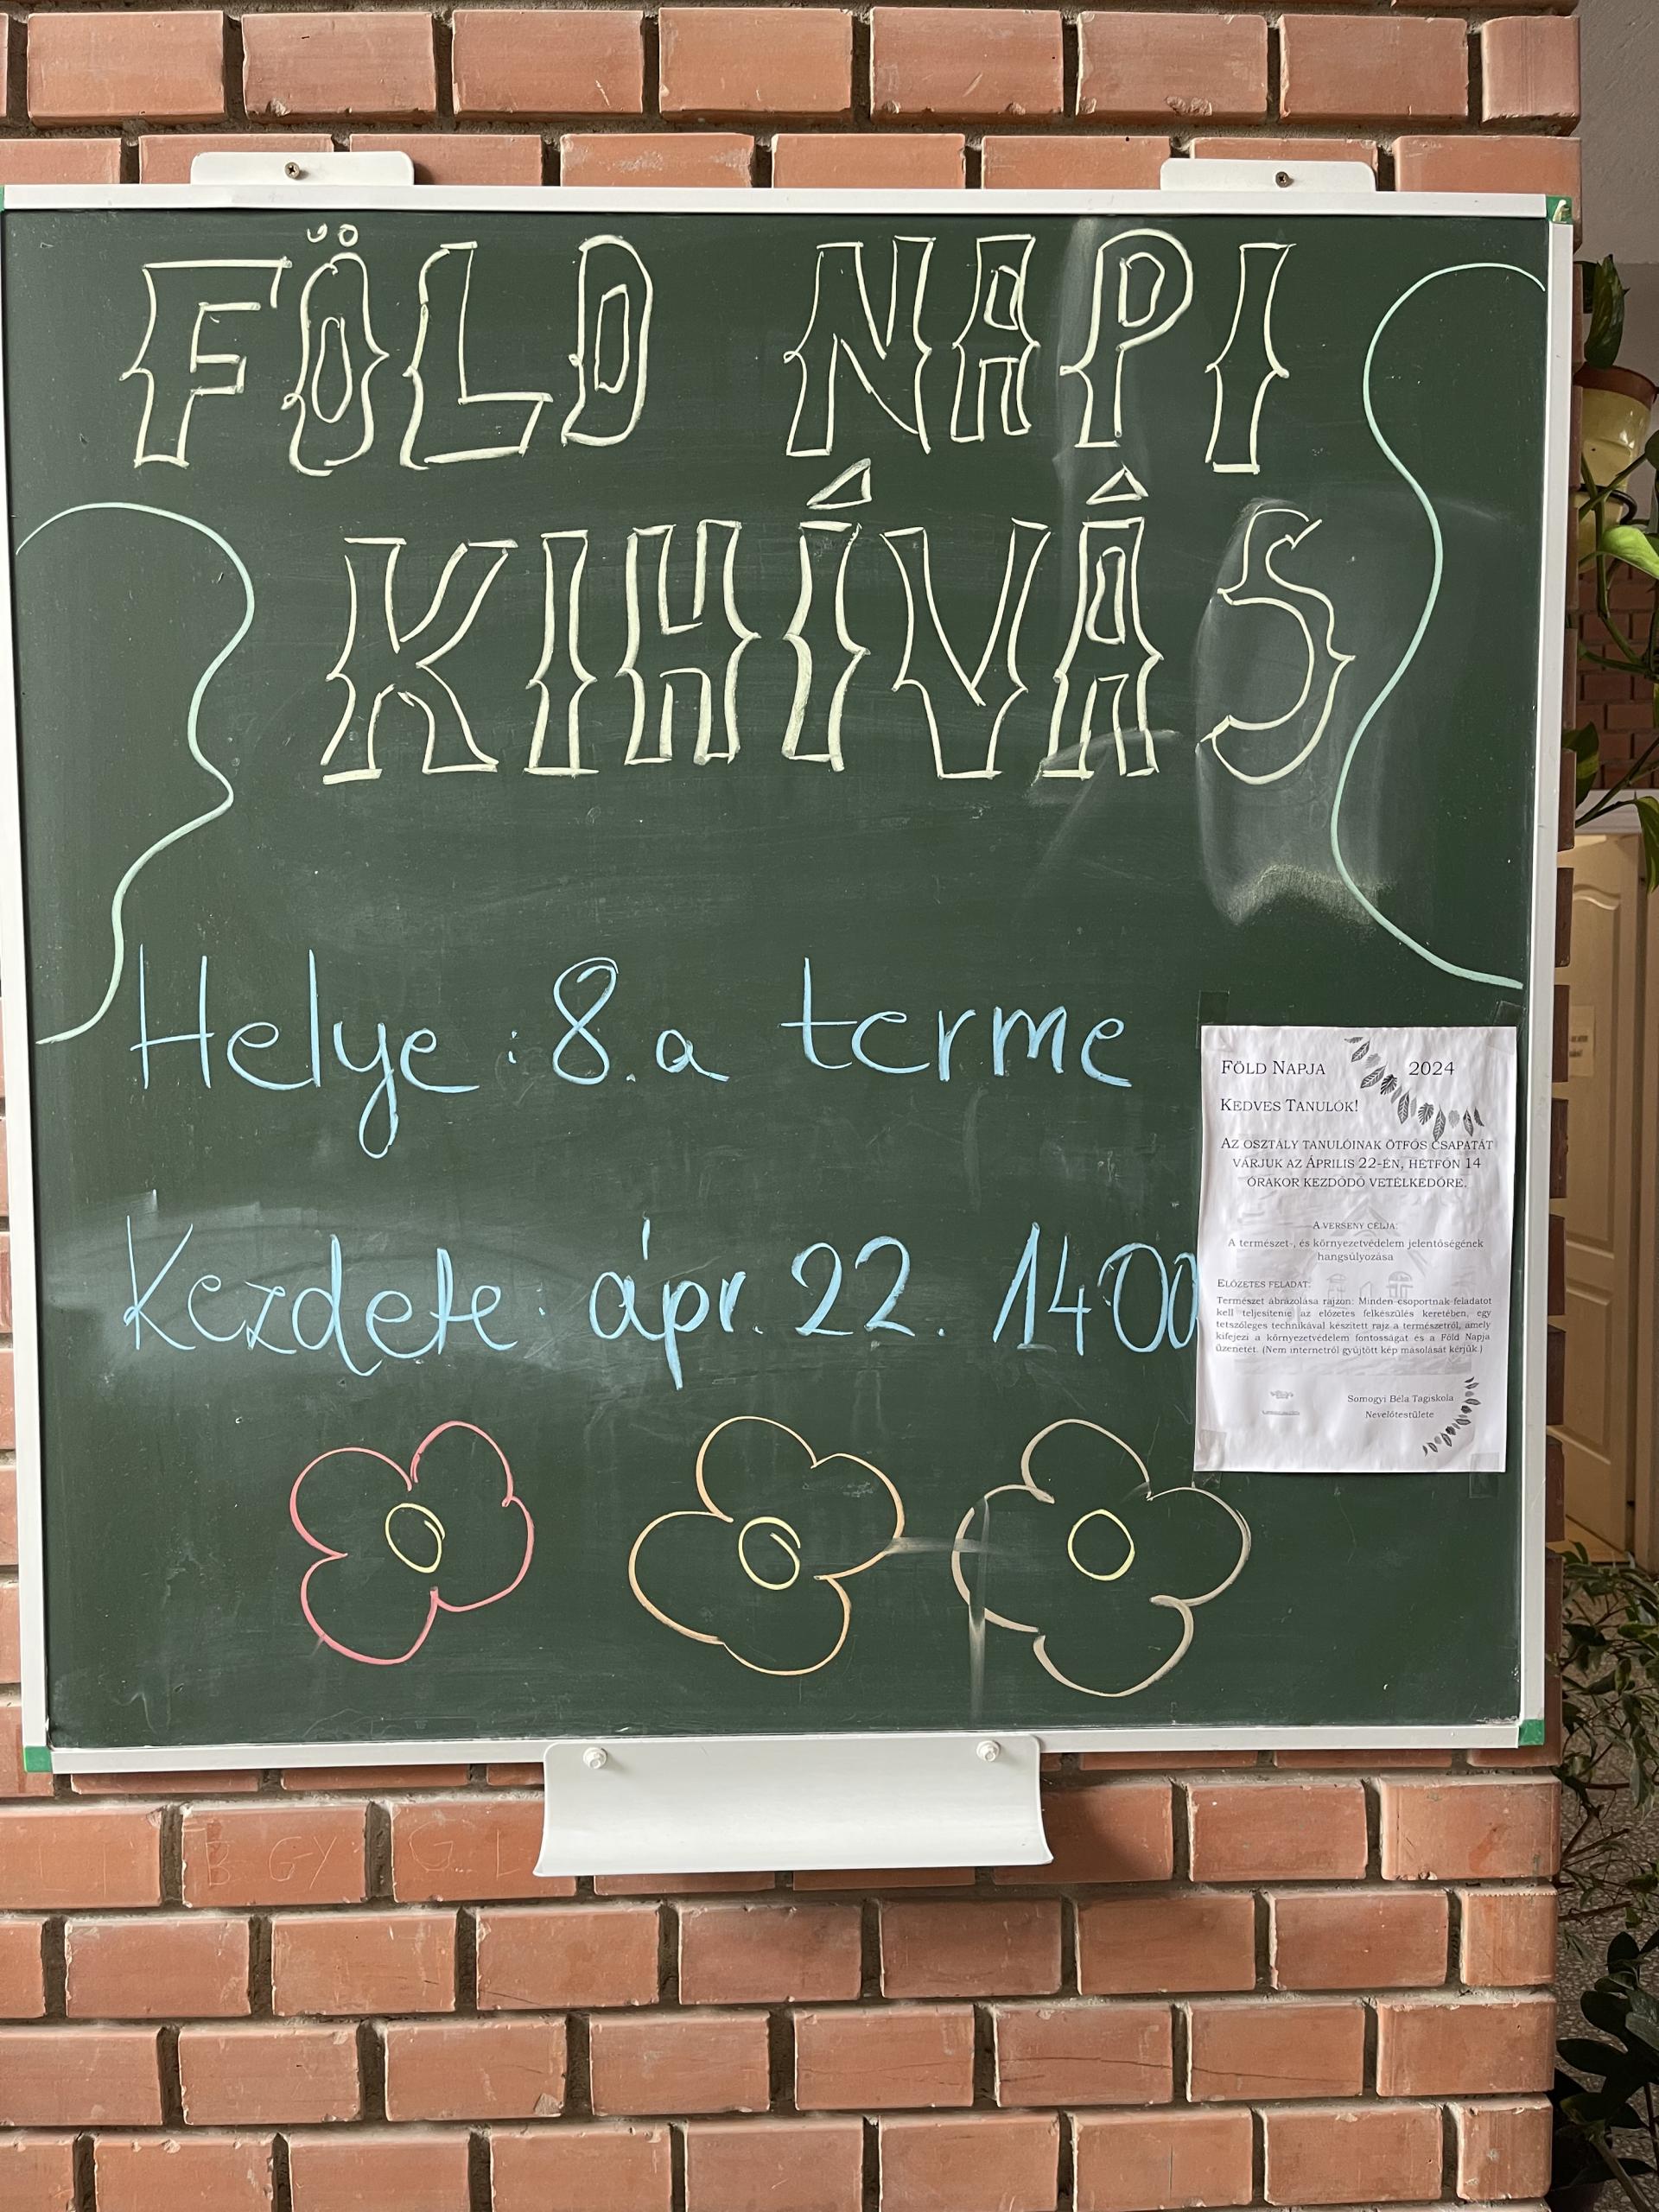 FÖLD NAPI
KIHÍVÁS
Helye: 8.a terme
Kezdete: ápr. 22. 1400
FÖLD NAPJA 2024
KEDVES TANULÓK!
AZ OSZTÁLY TANULÓINAK ÖTFŐS CSAPATÁT
VÁRJUK AZ ÁPRILIS 22-ÉN, HÉTFŐN 14
ÓRAKOR KEZDŐDŐ VETÉLKEDŐRE.
A VERSENY CÉLJA:
A természet-, és környezetvédelem jelentőségének
hangsúlyozása
ELŐZETES FELADAT:
Természet ábrázolása rajzon: Minden csoportnak feladatot
kell teljesítenie az előzetes felkészülés keretében, egy
tetszőleges technikával készített rajz a természetről, amely
kifejezi a környezetvédelem fontosságát és a Föld Napja
üzenetét. (Nem internetről gyűjtött kép másolását kérjük.)
Somogyi Béla Tagiskola
Nevelőtestülete
B GY G L